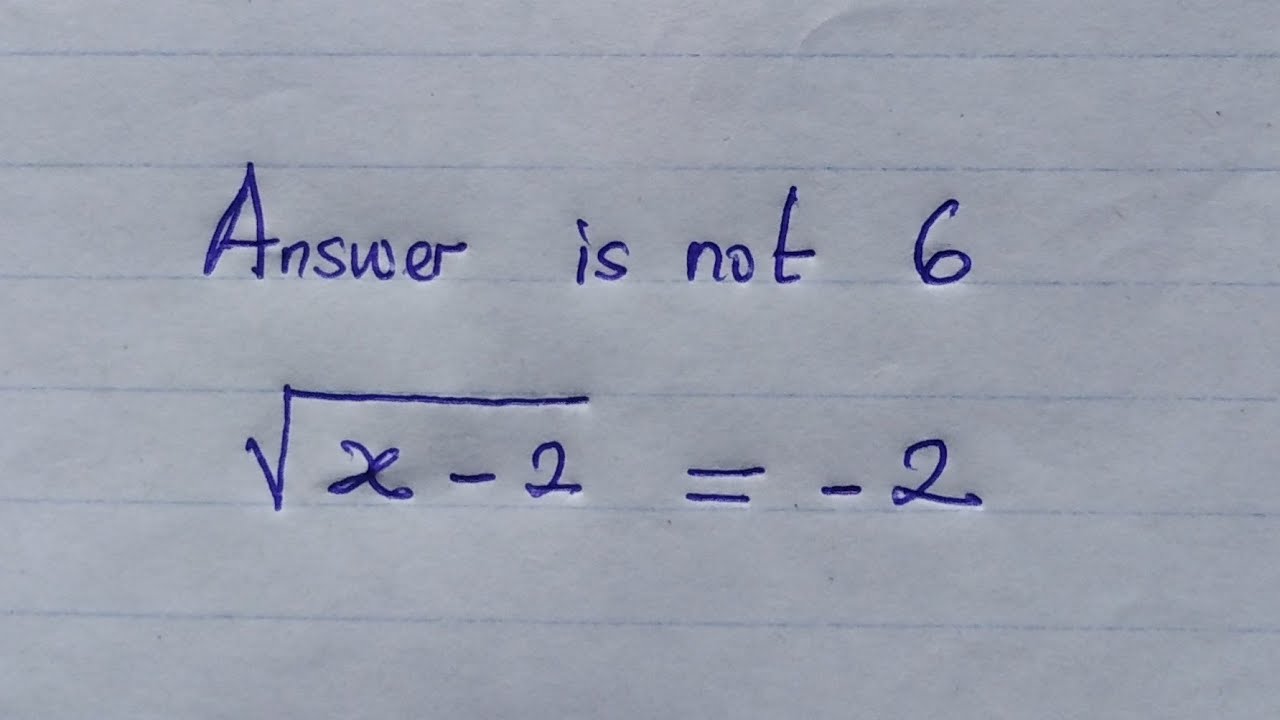 Answer is not 6
√x - 2 = - 2